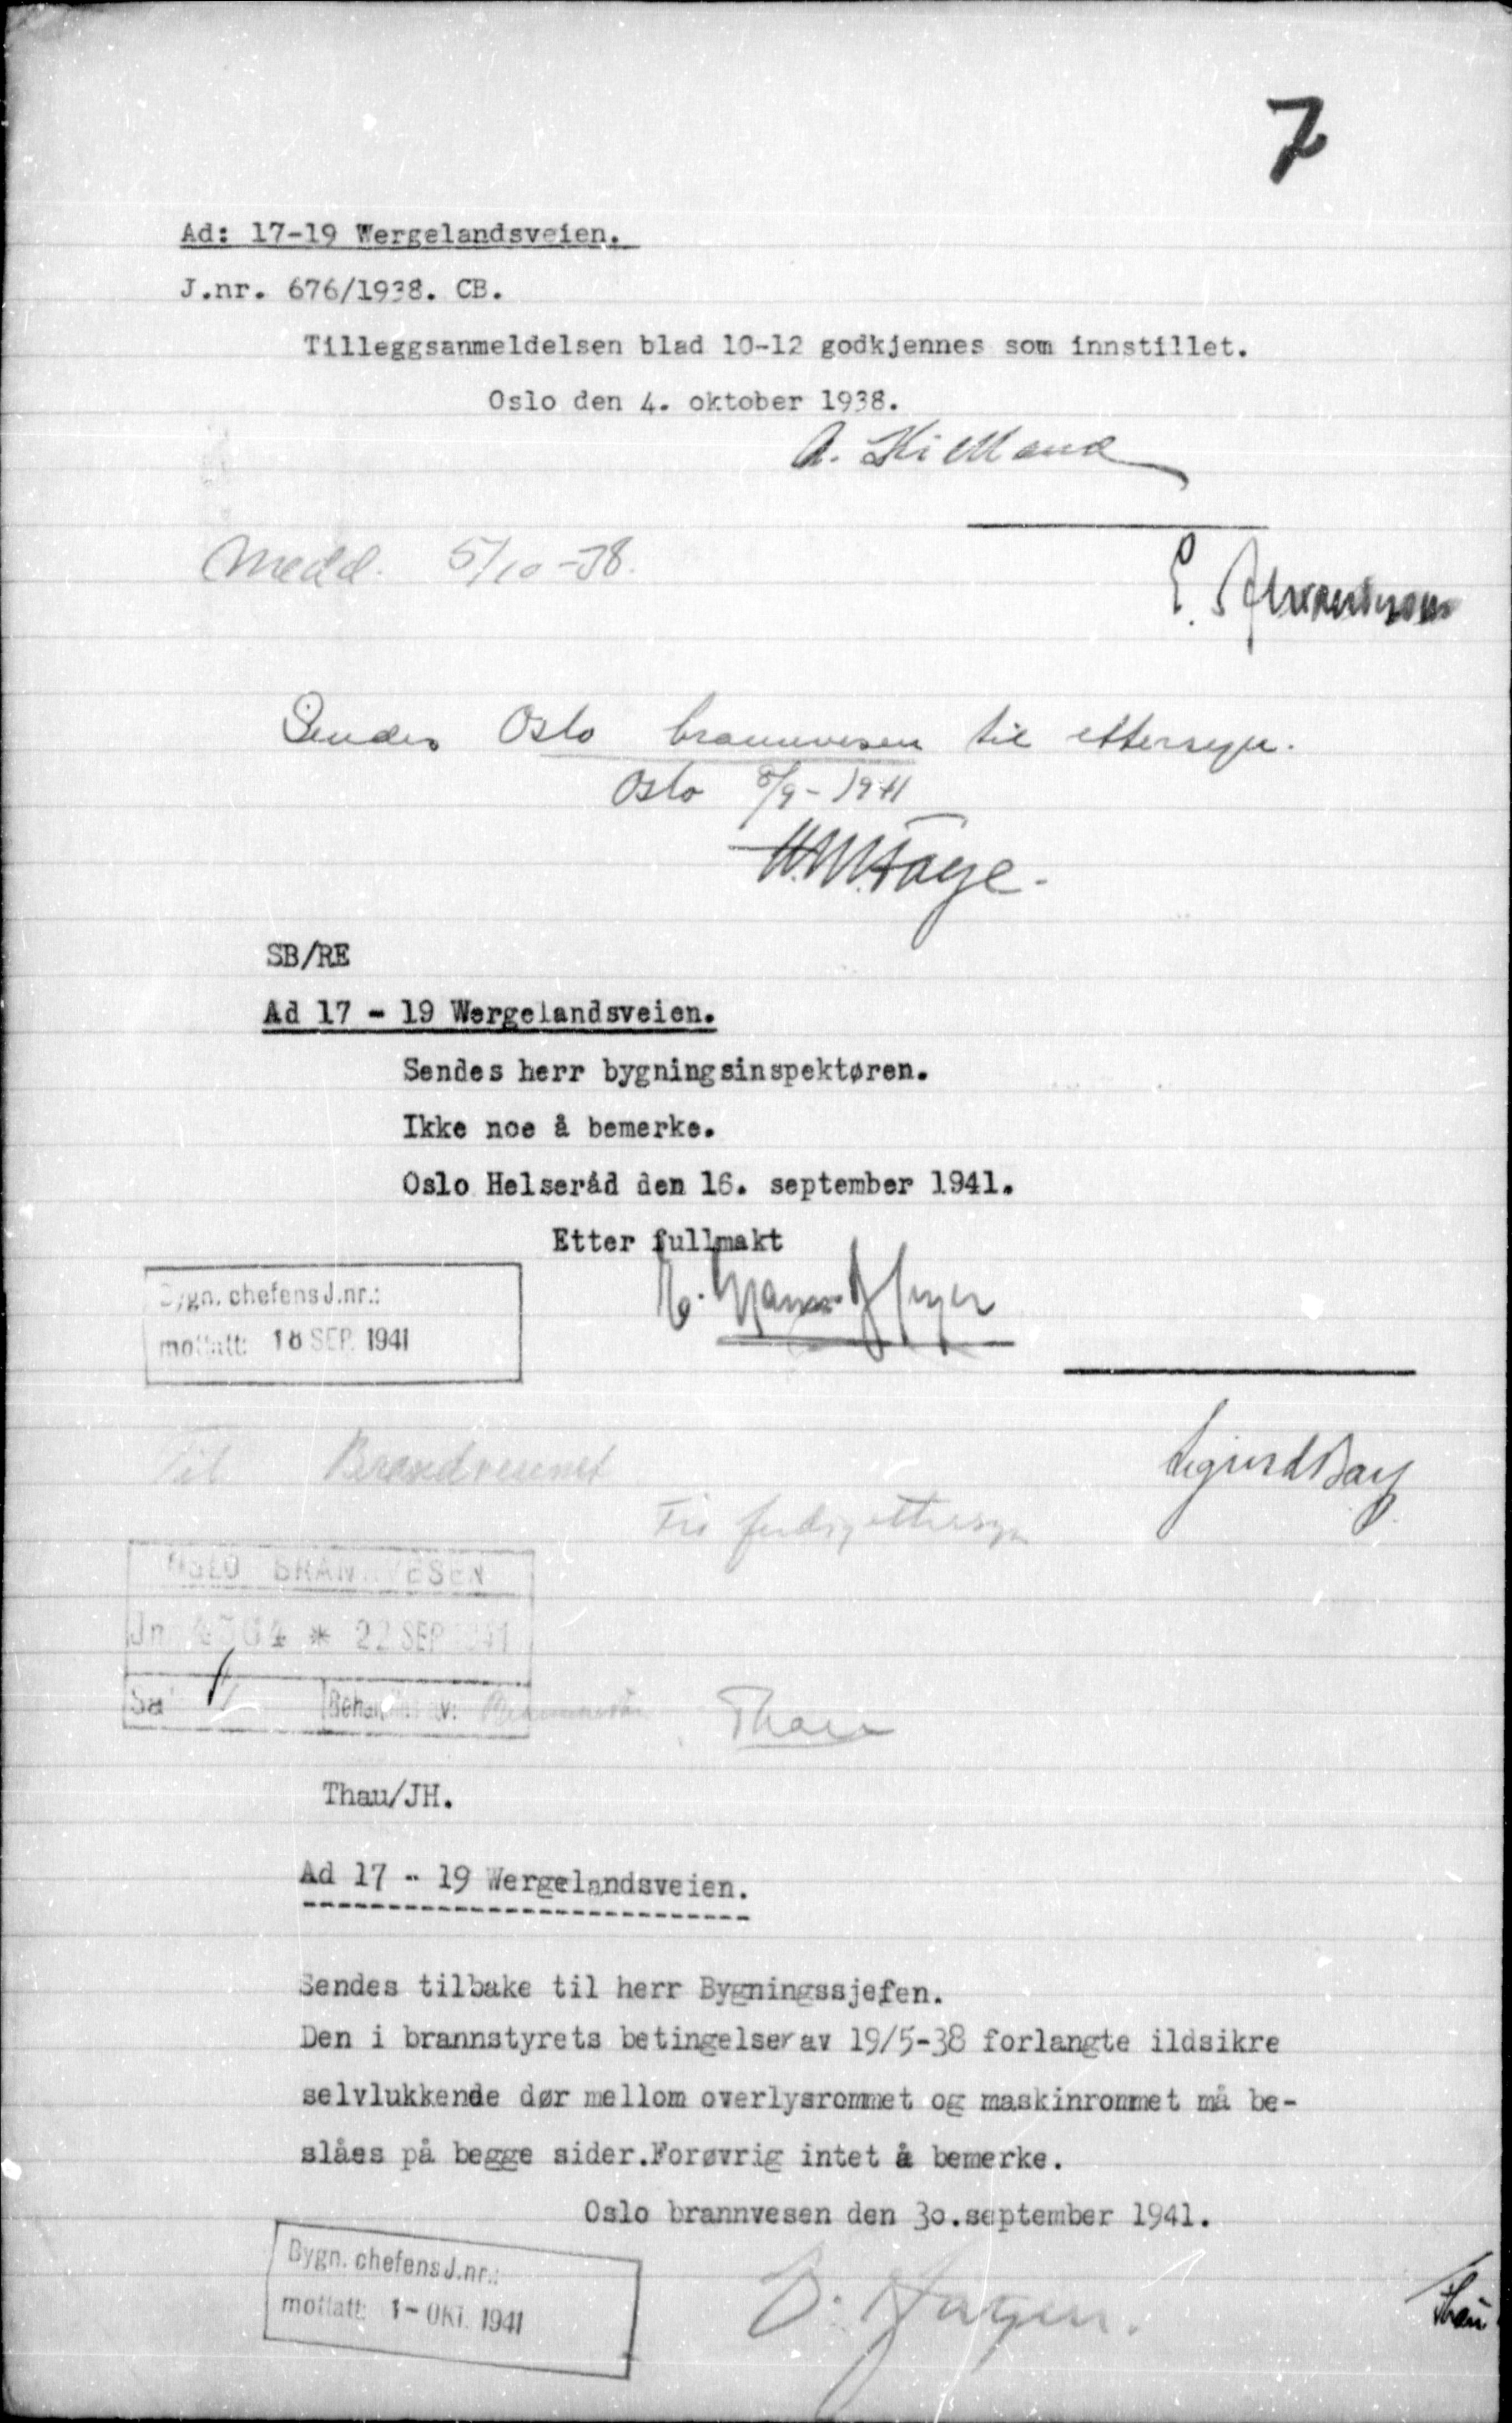 7
Ad: 17-19 Wergelandsveien.
J.nr. 676/1938. CB.
Tilleggsanmeldelsen blad 10-12 godkjennes som innstillet.
Oslo den 4. oktober 1938.
A. Kielland
Medd. 5/10-38.
E.
Sendes Oslo brannvesen til ettersyn.
Oslo 8/9-1941
SB/RE
Ad 17 - 19 Wergelandsveien.
Sendes herr bygningsinspektøren.
Ikke noe å bemerke.
Oslo Helseråd den 16. september 1941.
Etter fullmakt
Bygn. chefens J.nr.:
mottatt: 18 SEP. 1941
Sigurd
Til Brandvesenet
ferdigettersyn
OSLO BRANNVESEN
22 SEP 1941
Thau
Thau/JH.
Ad 17 - 19 Wergelandsveien.
Sendes tilbake til herr Bygningssjefen.
Den i brannstyrets betingelser av 19/5-38 forlangte ildsikre
selvlukkende dør mellom overlysrommet og maskinrommet må be-
slåes på begge sider.Forøvrig intet å bemerke.
Oslo brannvesen den 30.september 1941.
Bygn. chefens J.nr.:
mottatt: 1-OKT. 1941
Thau